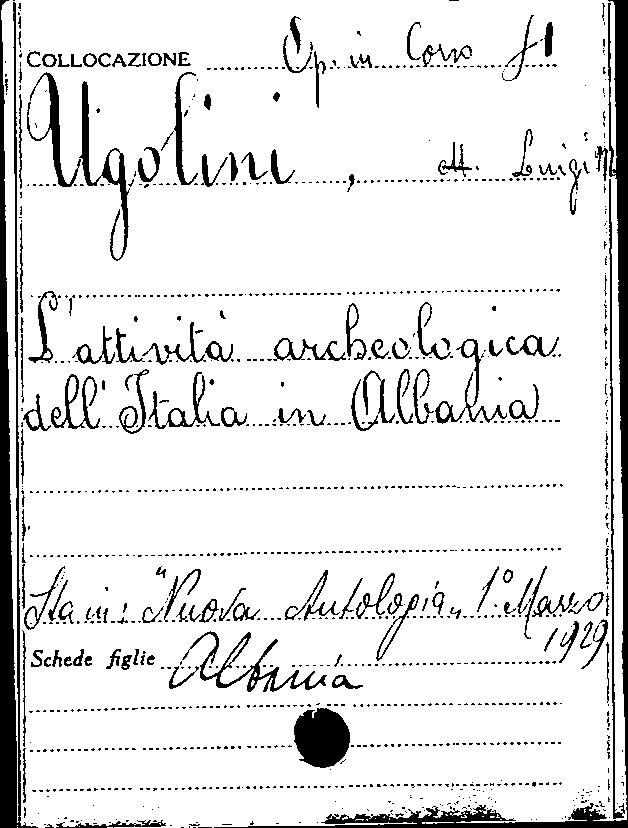 COLLOCAZIONE Op. in Corso f1
Ugolini, Luigi M
L'attività archeologica
dell'Italia in Albania
Sta in: "Nuova Antologia„ 1° Marzo
1929
Schede figlie Albania